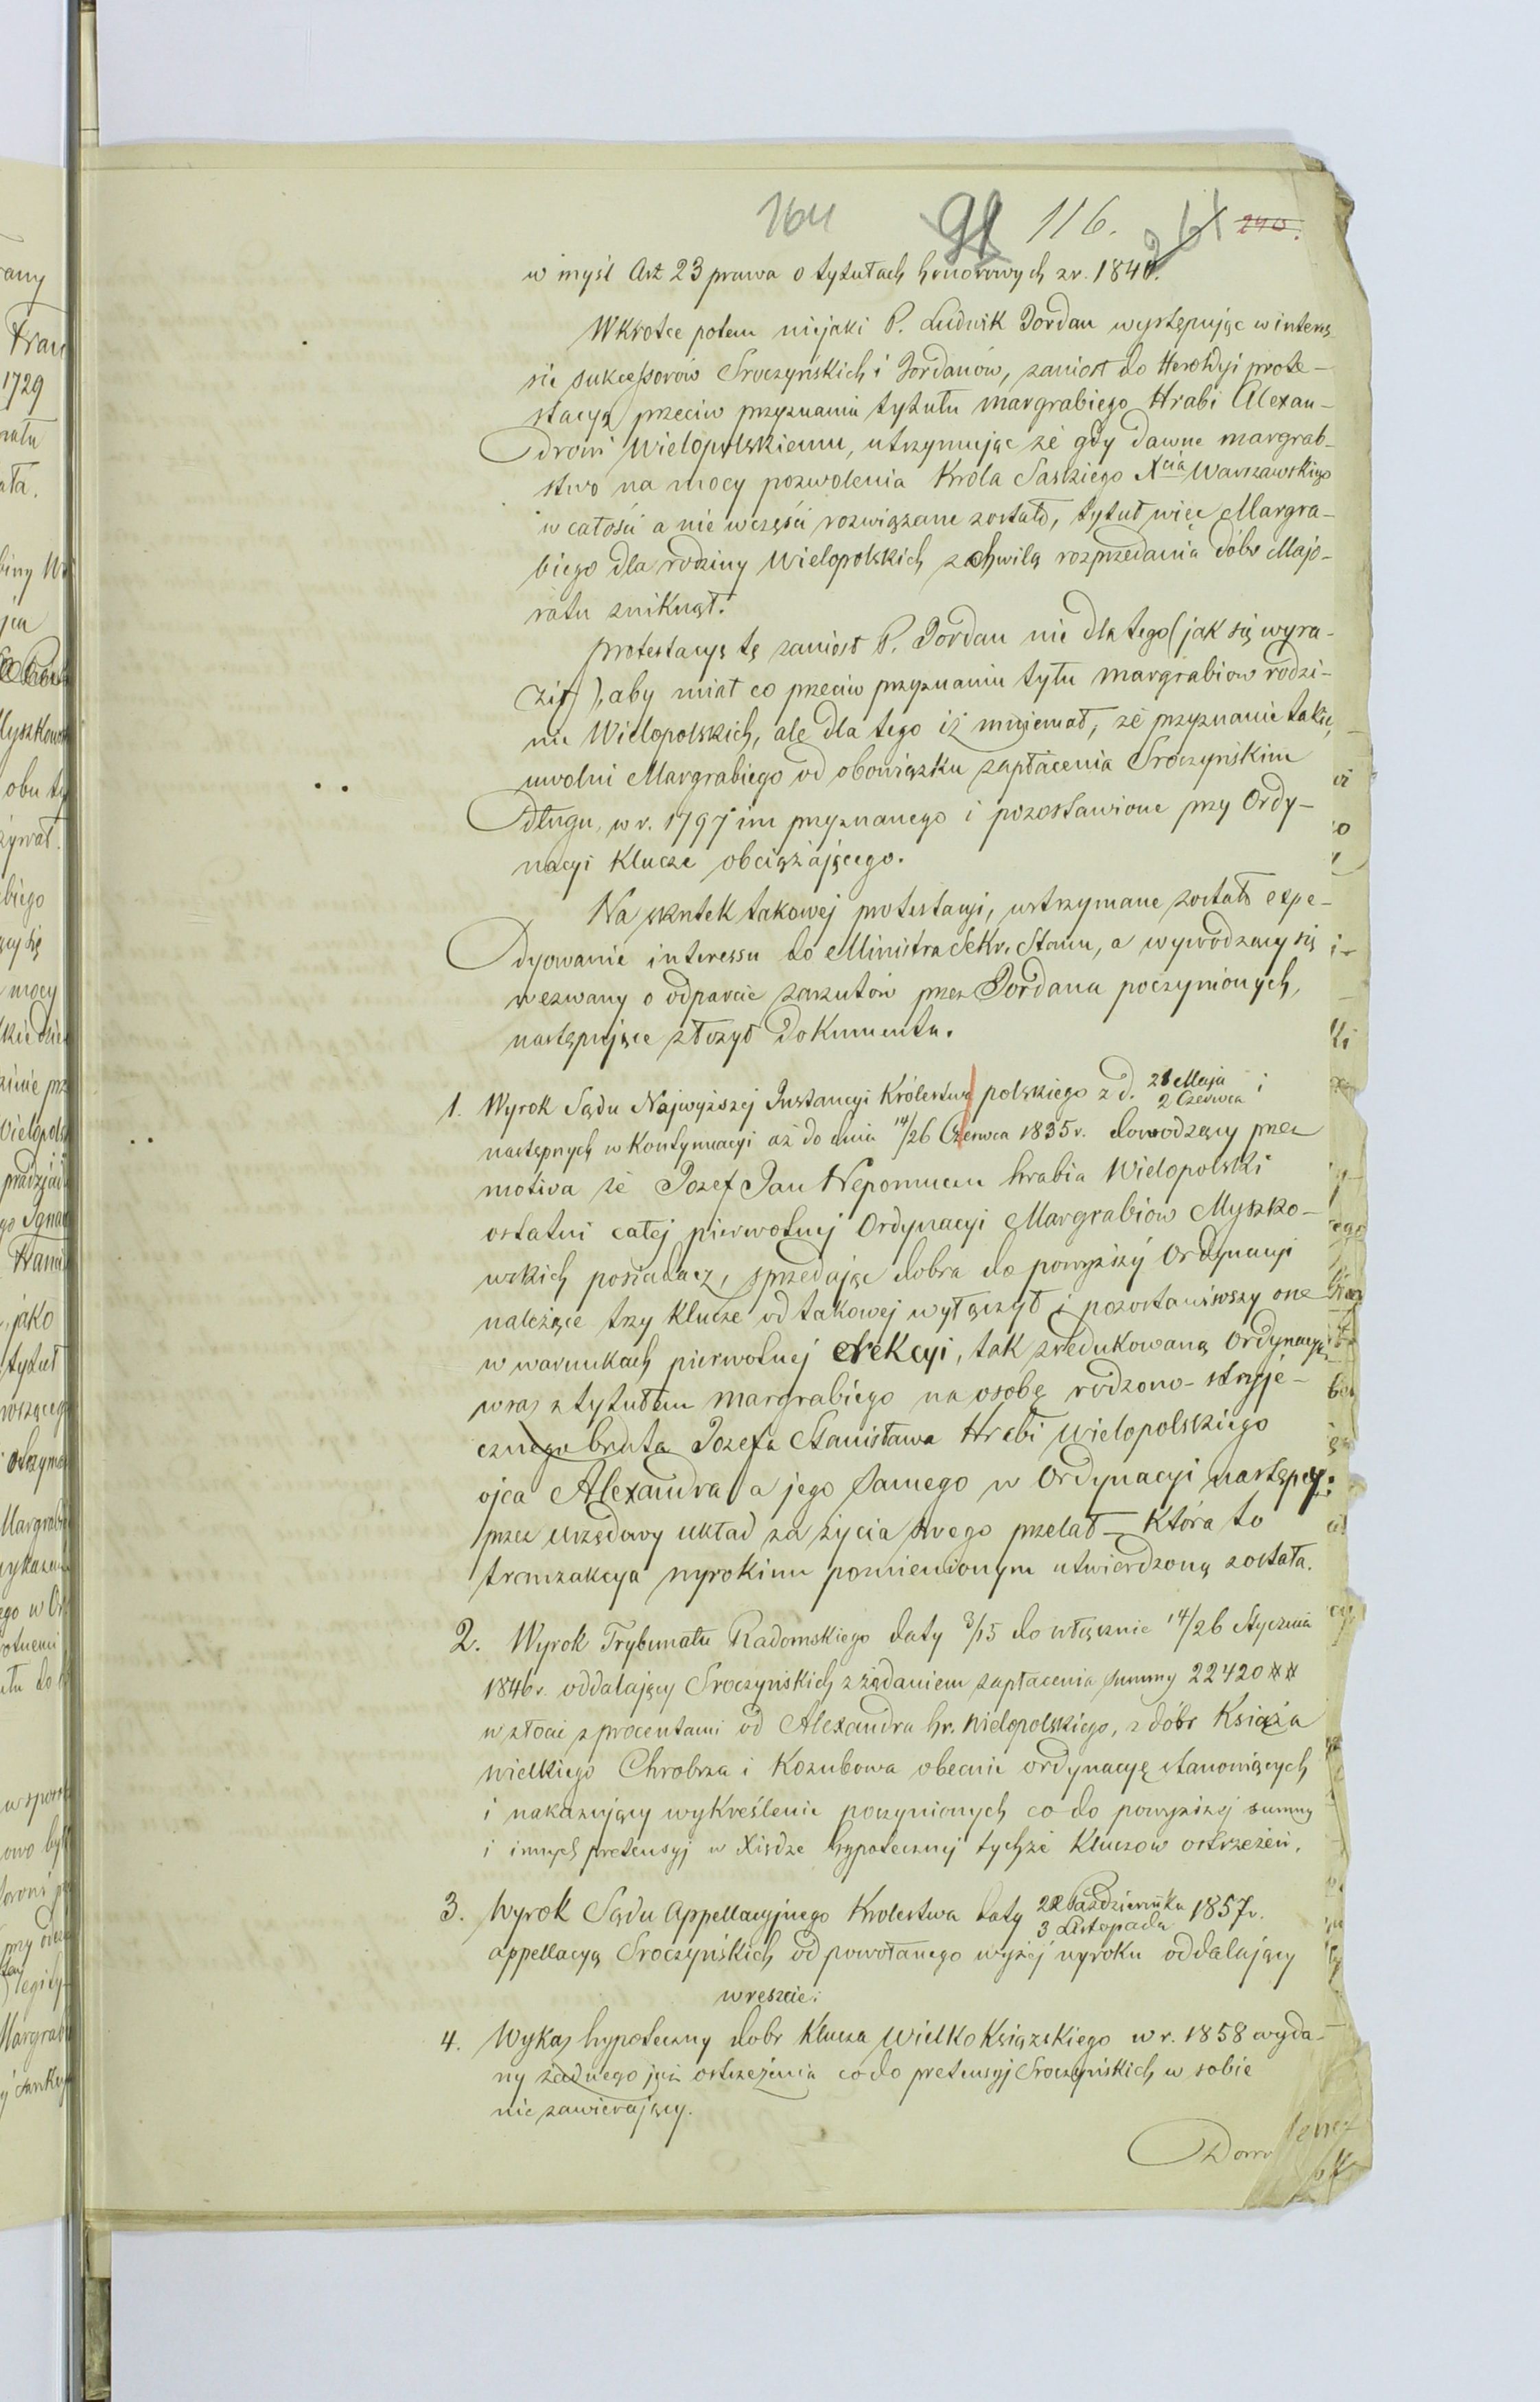 164 91 116. 261 240.
w myśl Art 23 prawa o tytułach honorowych z r. 1840.
Wkrotce potem niejaki P. Ludwik Jordan występując w interes
sie sukcessorów Sroczyńskich i Jordanów, zaniosł do Heroldyi prote-
stacyą przeciw przyznaniu tytułu margrabiego Hrabi Alexan-
drowi Wielopolskiemu, utrzymując że gdy dawne margrab-
stwo na mocy pozwolenia Króla Saskiego Xcia Warszawskiego
w całości a nie w części rozwiązane zostało, tytuł więc Margra-
biego dla rodziny Wielopolskich z chwilą rozprzedania dóbr Majo-
ratu zniknął.
Protestacyą tę zaniosł P. Jordan nie dla tego (jak się wyra-
ził), aby miał co przeciw przyznaniu tytu margrabiow rodzi-
nie Wielopolskich, ale dla tego iż mniemał, że przyznanie takie,
uwolni Margrabiego od obowiązku zapłacenia Sroczyńskim
długu, w r. 1797 im przyznanego i pozostawione przy Ordy-
nacyi Klucze obciążającego.
Na skutek takowej protestacyi, wstrzymane zostało expe-
dyowanie interessu do Ministra Sekr. Stanu, a wywodzący się
wezwany o odparcie zarzutów przez Jordana poczynionych,
następujące złożył Dokumenta.
1. Wyrok Sądu Najwyższej Instancyi Królestwa polskiego z d. 21 Maja / 2 Czerwca i
następnych w Kontynuacyi aż do dnia 14/26 Czerwca 1835 r. dowodzący przez
motiva że Jozef Jan Nepomucen hrabia Wielopolski
ostatni całej pierwotnej Ordynacyi Margrabiow Myszko-
wskich posiadacz, sprzedając dobra do powyższy Ordynacyi
należące trzy Klucze od takowej wyłączył i pozostawiwszy one
w warunkach pierwotnej erekcyi, tak zredukowaną Ordynacyę,
wraz z tytułem margrabiego na osobę rodzono-stryje-
cznego brata Jozefa Stanisława Hrabi Wielopolskiego
ojca Alexandra a jego samego w Ordynacyi następcy:
przez urzędowy układ za życia swego przelał – Która to
tranzakcya wyrokiem pomienionym utwierdzoną została.
2. Wyrok Trybunału Radomskiego daty 3/15 do włącznie 14/26 Stycznia
1846 r. oddalający Sroczyńskich z żądaniem zapłacenia summy 22420 ##
w złocie z procentami od Alexandra hr. Wielopolskiego, z dóbr Książa
wielkiego Chrobrza i Kozubowa obecnie ordynacyę stanowiących
i nakazujący wykreślenie poczynionych co do powyższej summy
i innych pretensyj w Xiędze hypotecznej tychże Kluczow ostrzeżeń.
3. Wyrok Sądu Appellacyjnego Krolestwa daty 22 Października / 3 Listopada 1857 r.
appellacyą Sroczyńskich od powołanego wyżej wyroku oddalający
wreszcie:
4. Wykaz hypoteczny dobr Klucza Wielko Książskiego w r. 1858 wyda-
ny żadnego już ostrzeżenia co do pretensyj Sroczyńskich w sobie
nie zawierający.